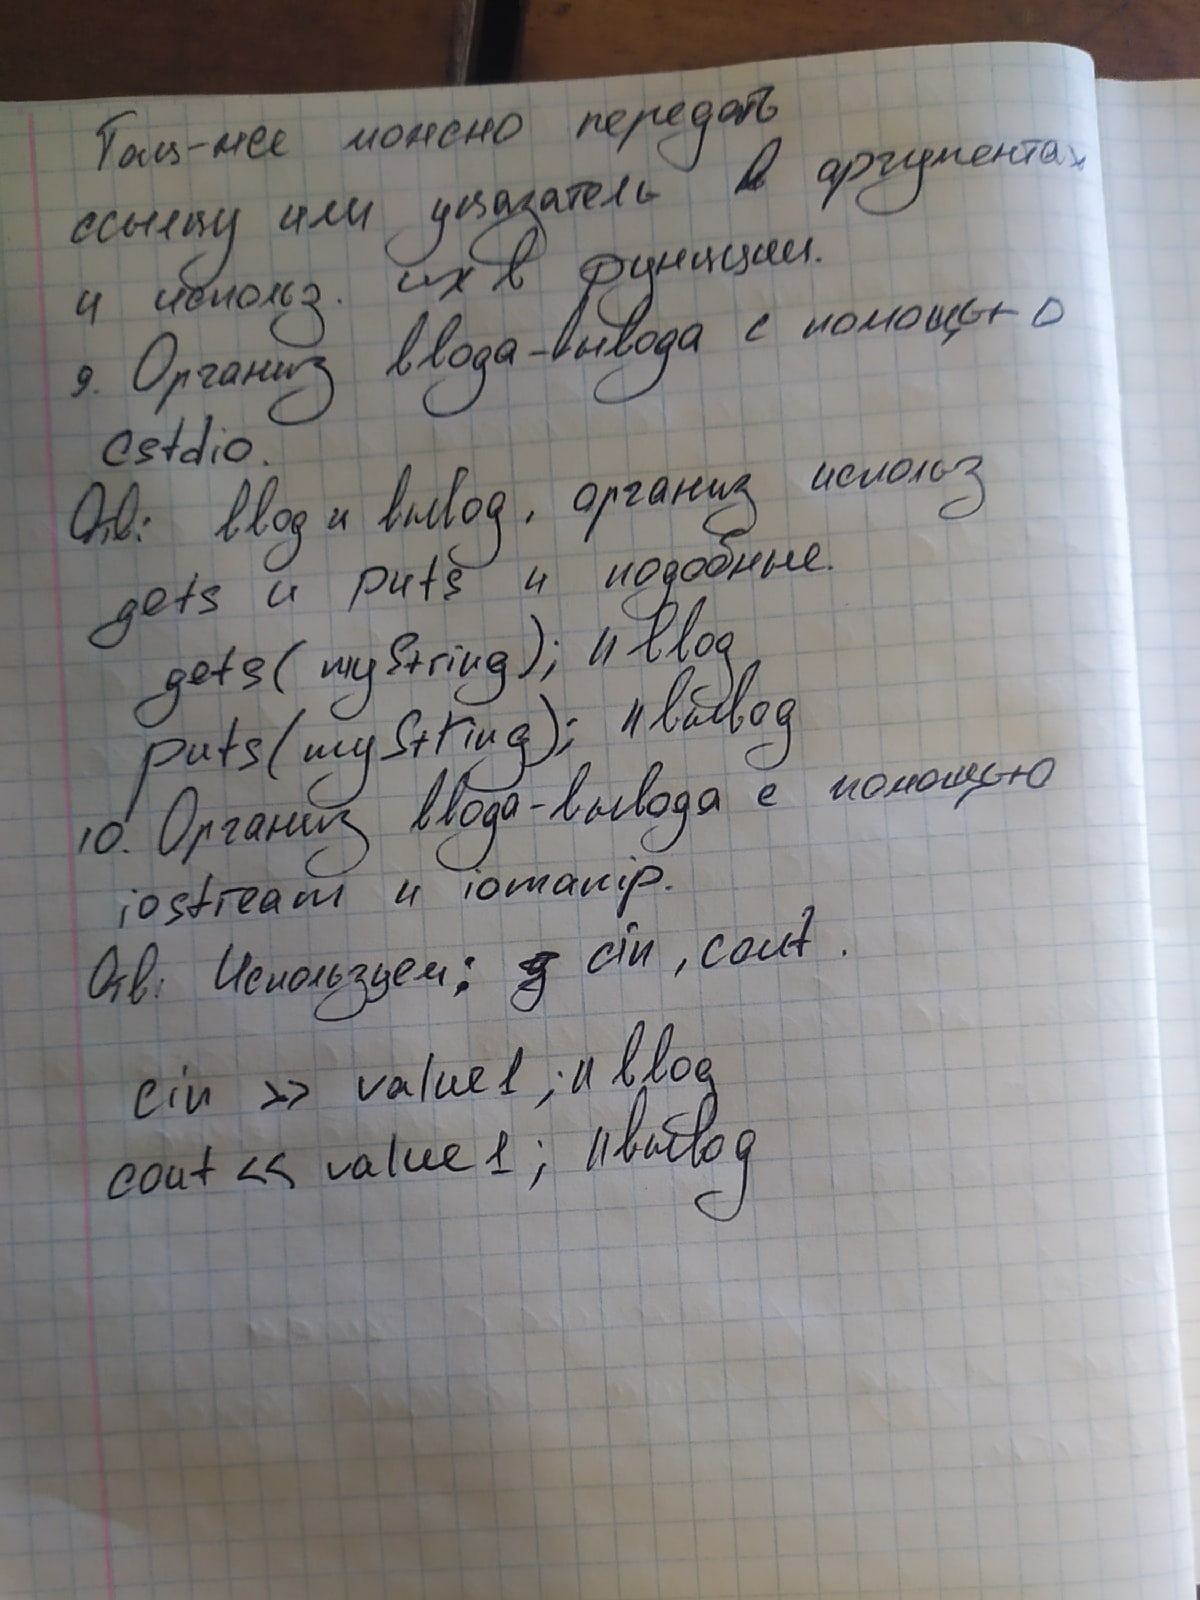 Так-же можно передать
ссылку или указатель в аргументах
и использ. их в функции.
9. Организ ввода-вывода с помощью
cstdio.
Отв: ввод и вывод, организ использ
gets и puts и подобные.
gets(myString); // ввод
puts(myString); // вывод
10. Организ ввода-вывода с помощью
iostream и iomanip.
Отв: Используем: cin, cout.
cin >> value1; // ввод
cout << value1; // вывод